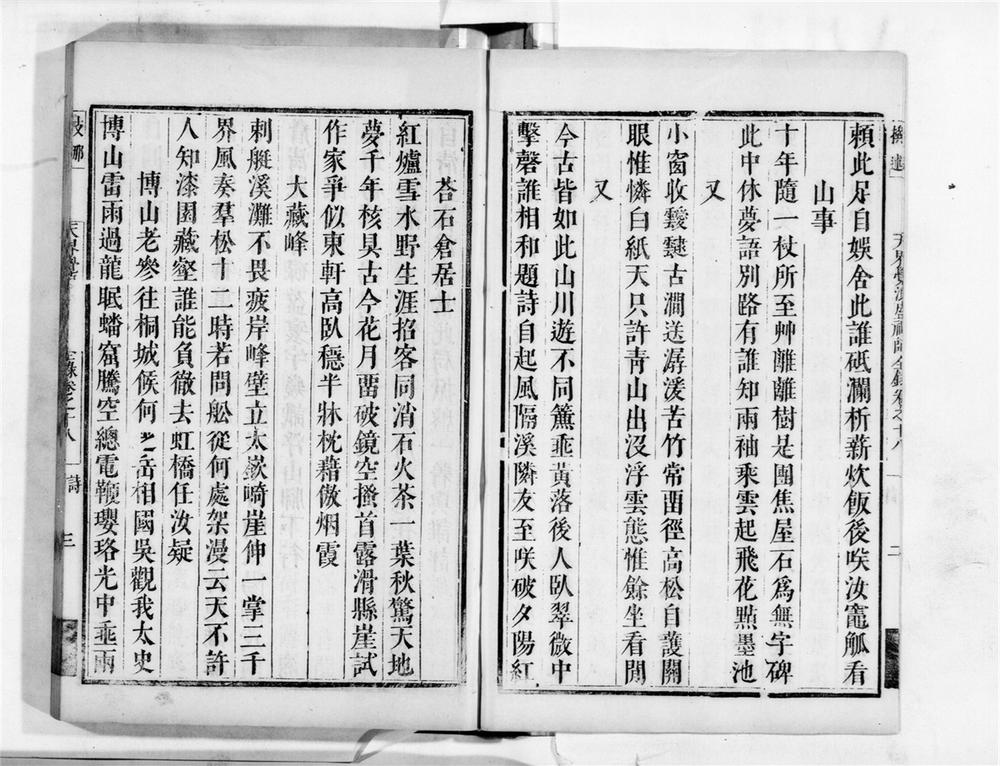 賴此足自娛舍此誰砥瀾析薪炊飯後咲汝竈觚看
山事
十年隨一杖所至艸離離樹是團焦屋石爲無字碑
此中休夢語別路有誰知兩袖乘雲起飛花㸃墨池
又
小窗收靉靆古澗送潺湲苦竹常畱徑高松自護關
眼惟憐白紙天只許靑山出沒浮雲態惟餘坐看閒
又
今古皆如此山川遊不同薰乖黃落後人臥翠微中
擊磬誰相和題詩自起風隔溪隣友至咲破夕陽紅
天界覺浪盛禪師全錄卷之十八
二
荅石倉居士
紅爐雪水野生涯招客同消石火茶一葉秋驚天地
夢千年核具古今花月畱破鏡空搔首露滑縣崖試
作家爭似東軒高臥穩半牀枕藉傲烟霞
大藏峰
刺艇溪灘不畏疲岸峰壁立太嶔崎崖伸一掌三千
界風奏羣松十二時若問舩從何處架漫云天不許
人知漆園藏壑誰能負徹去虹橋任汝疑
博山老叅往桐城候何 岳相國吳觀我太史
博山雷雨過龍眠蟠窟騰空總電鞭瓔珞光中乖兩
支那
全錄卷之十八
詩
三